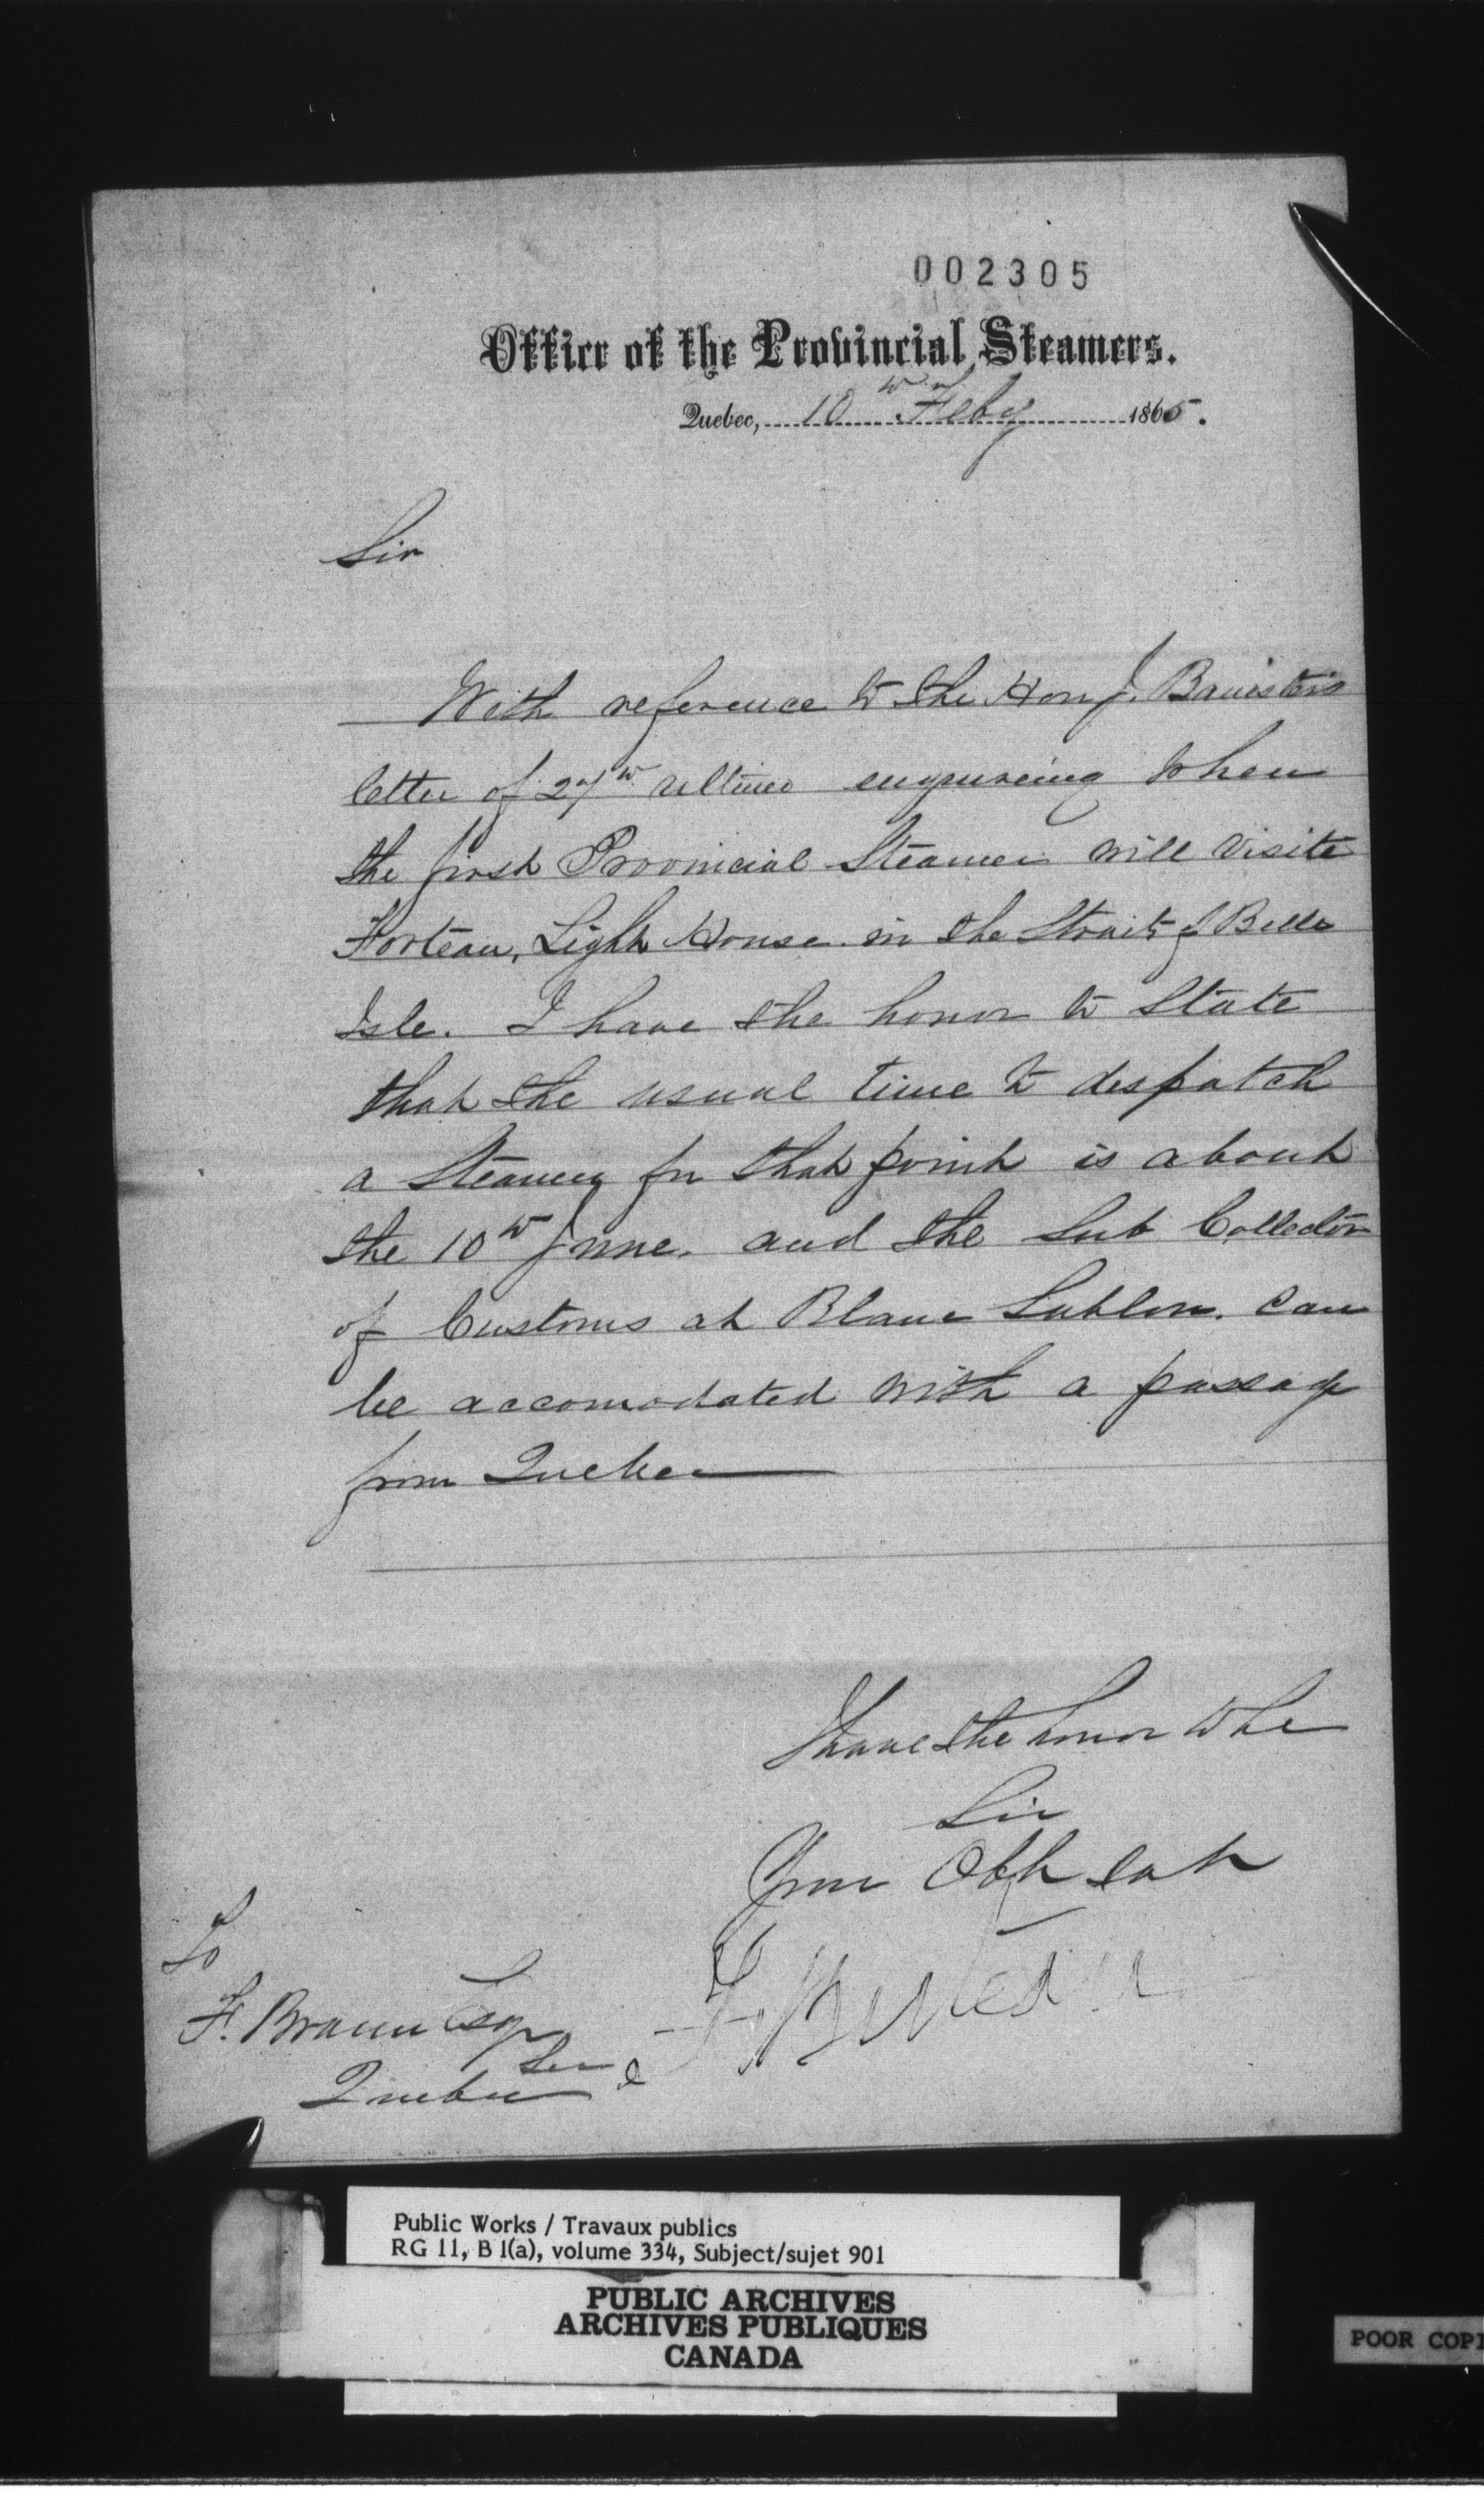 002305
Office of the Provincial Steamers.
Quebec, 10th Feby 1865.
Sir
With reference to the Hon J.
letter of 27th ultimo enquireing when
the first Provincial Steamer will visite
Forteau, Light House in the Straits of Belle
Isle. I have the honor to State
that the usual time to despatch
a Steamer for that point is about
the 10th June. and the Sub Collector
of Customs at Blanc Sablon. can
be accomodated with a passage
from Quebec
I have the honor to be
Sir
Your Obt
To
F. Braun Esqr
Sec
Quebec
Public Works / Travaux publics
RG 11, B 1(a), volume 334, Subject/sujet 901
PUBLIC ARCHIVES
ARCHIVES PUBLIQUES
CANADA
POOR COPI